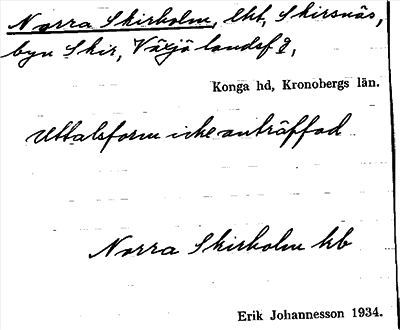 Norra Skirholm, lht, Skirsnäs,
byn Skir, Växjö landsf g,
Konga hd, Kronobergs län.
Uttalsform icke anträffad
Norra Skirholm kb
Erik Johannesson 1934.